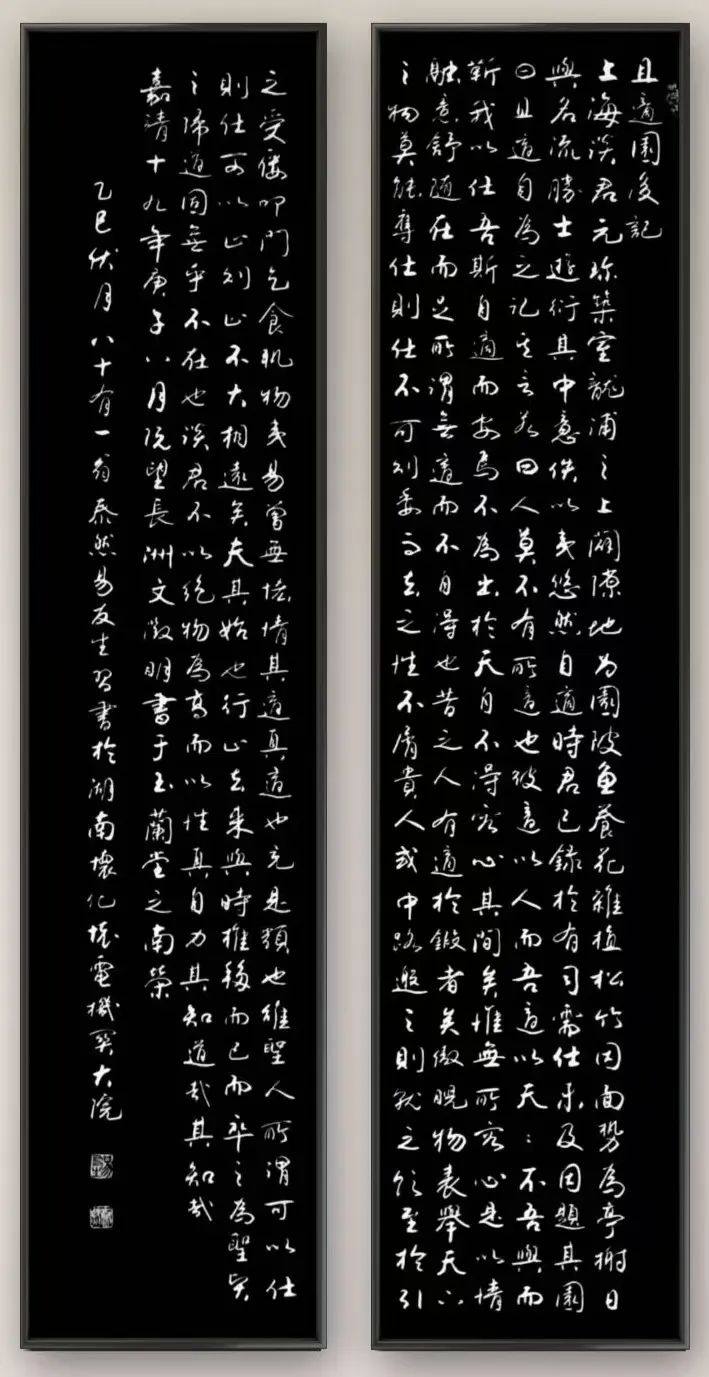 且適園後記
上海談君元珎築室龍浦之上闢隙地為園陂魚養花雜植松竹因面勢為亭榭日
與名流勝士遊衍其中意佚以夷悠然自適時君已錄於有司需仕未及因題其園
曰且適自為之記其言若曰人莫不有所適也彼適以人而吾適以天〻不吾與而
靳我以仕吾斯自適而安焉不為出於天自不得容心其間矣惟無所容心是以情
融意舒隨在而足所謂無適而不自得也昔之人有適於鍛者矣傲睨物表舉天下
之物莫能奪仕則仕不可則委而去之性不屑貴人或中路邀之則就之飲至於引
之受偃叩門乞食肌物夷易曾無恡情其適真適也充是類也雖聖人所謂可以仕
則仕可以止則止不大相遠矣夫其始也行止去來與時推移而已而卒之為聖賢
之歸適固無乎不在也談君不以絕物為高而以性真自力其知道哉其知哉
嘉靖十九年庚子八月既望長洲文徵明書于玉蘭堂之南榮
乙巳伏月八十有一翁泰然易友生習書於湖南懷化電機関大院